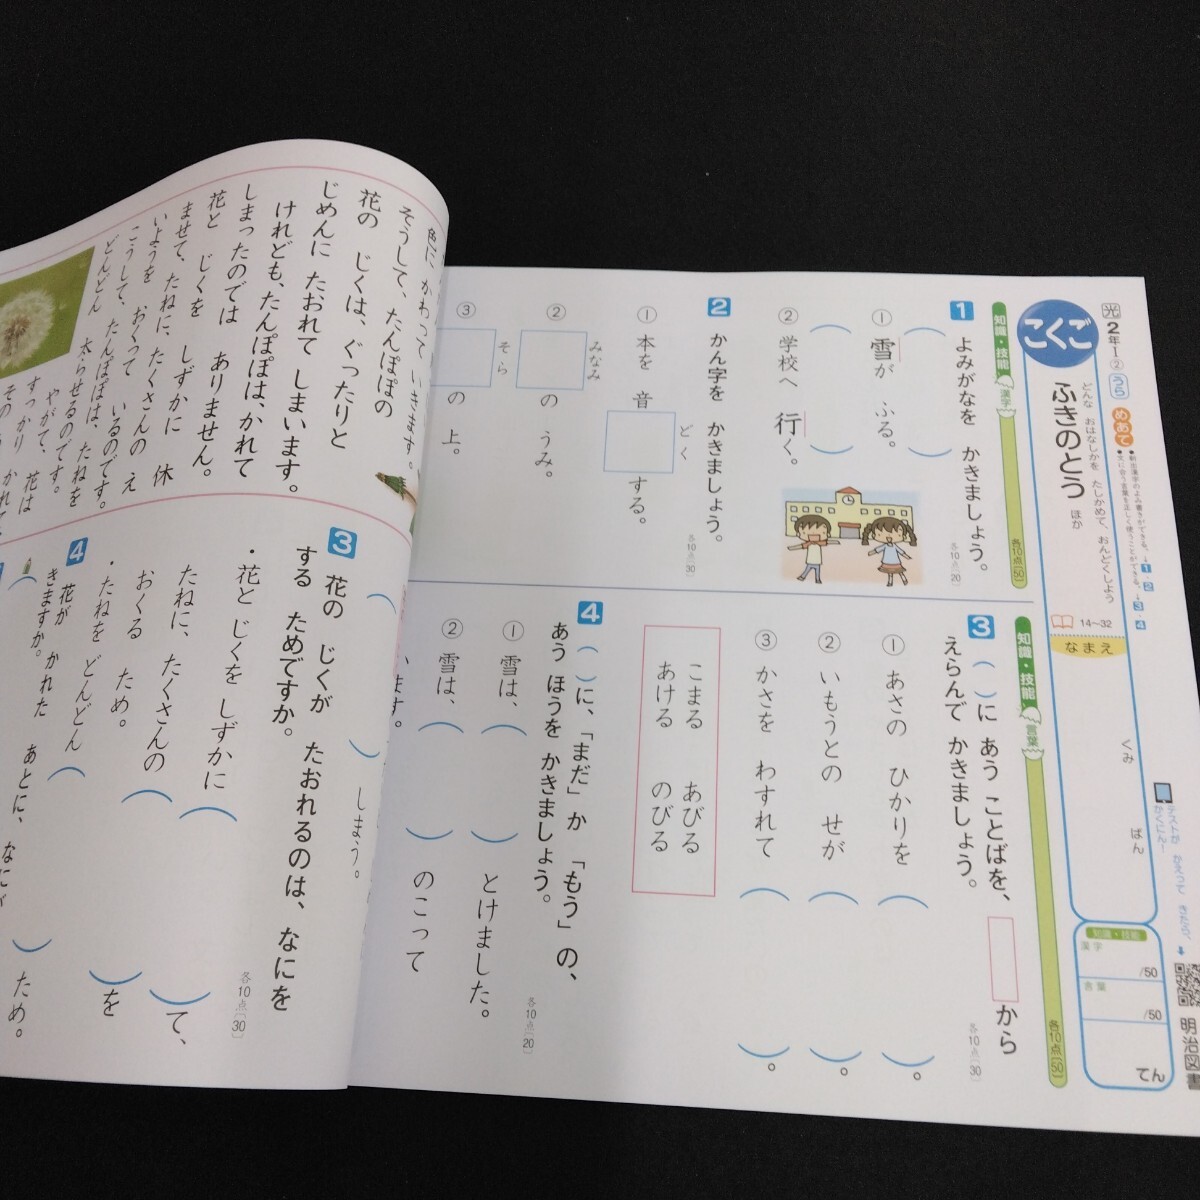 光 2年 1-② うら
こくご
ふきのとう ほか
どんな おはなしかを たしかめて、おんどくしよう
14〜32
めあて
●新出漢字のよみ書きができる。→1・2
●文に合う言葉を正しく使うことができる。→3・4
なまえ
くみ
ばん
テストが かえって きたら、
かくにん!
知識・技能
漢字
/50
言葉
/50
てん
明治図書
知識・技能 漢字 各10点〔50〕
1 よみがなを かきましょう。
各10点〔20〕
① 雪が ふる。
② 学校へ 行く。
2 かん字を かきましょう。
各10点〔30〕
① 本を 音 どく する。
② みなみ の うみ。
③ そら の 上。
知識・技能 言葉 各10点〔50〕
3 ( )に あう ことばを、 から
えらんで かきましょう。
各10点〔30〕
① あさの ひかりを ( )。
② いもうとの せが ( )。
③ かさを わすれて ( )。
こまる あびる
あける のびる
4 ( )に、「まだ」か 「もう」の、
あう ほうを かきましょう。
各10点〔20〕
① 雪は、( ) とけました。
② 雪は、( ) のこって
います。
色に かわって いきます。
そうして、たんぽぽの
花の じくは、ぐったりと
じめんに たおれて しまいます。
けれども、たんぽぽは、かれて
しまったのでは ありません。
花と じくを しずかに 休
ませて、たねに、たくさんの え
いようを おくって いるのです。
こうして、たんぽぽは、たねを
どんどん 太らせるのです。
やがて、花は
すっかり かれて、
その
( ) しまう。
3 花の じくが たおれるのは、なにを
する ためですか。
各10点〔30〕
・花と じくを しずかに ( )て、
たねに、たくさんの ( )を
おくる ため。
・たねを どんどん ( )ため。
4 花が かれた あとに、なにが
きますか。